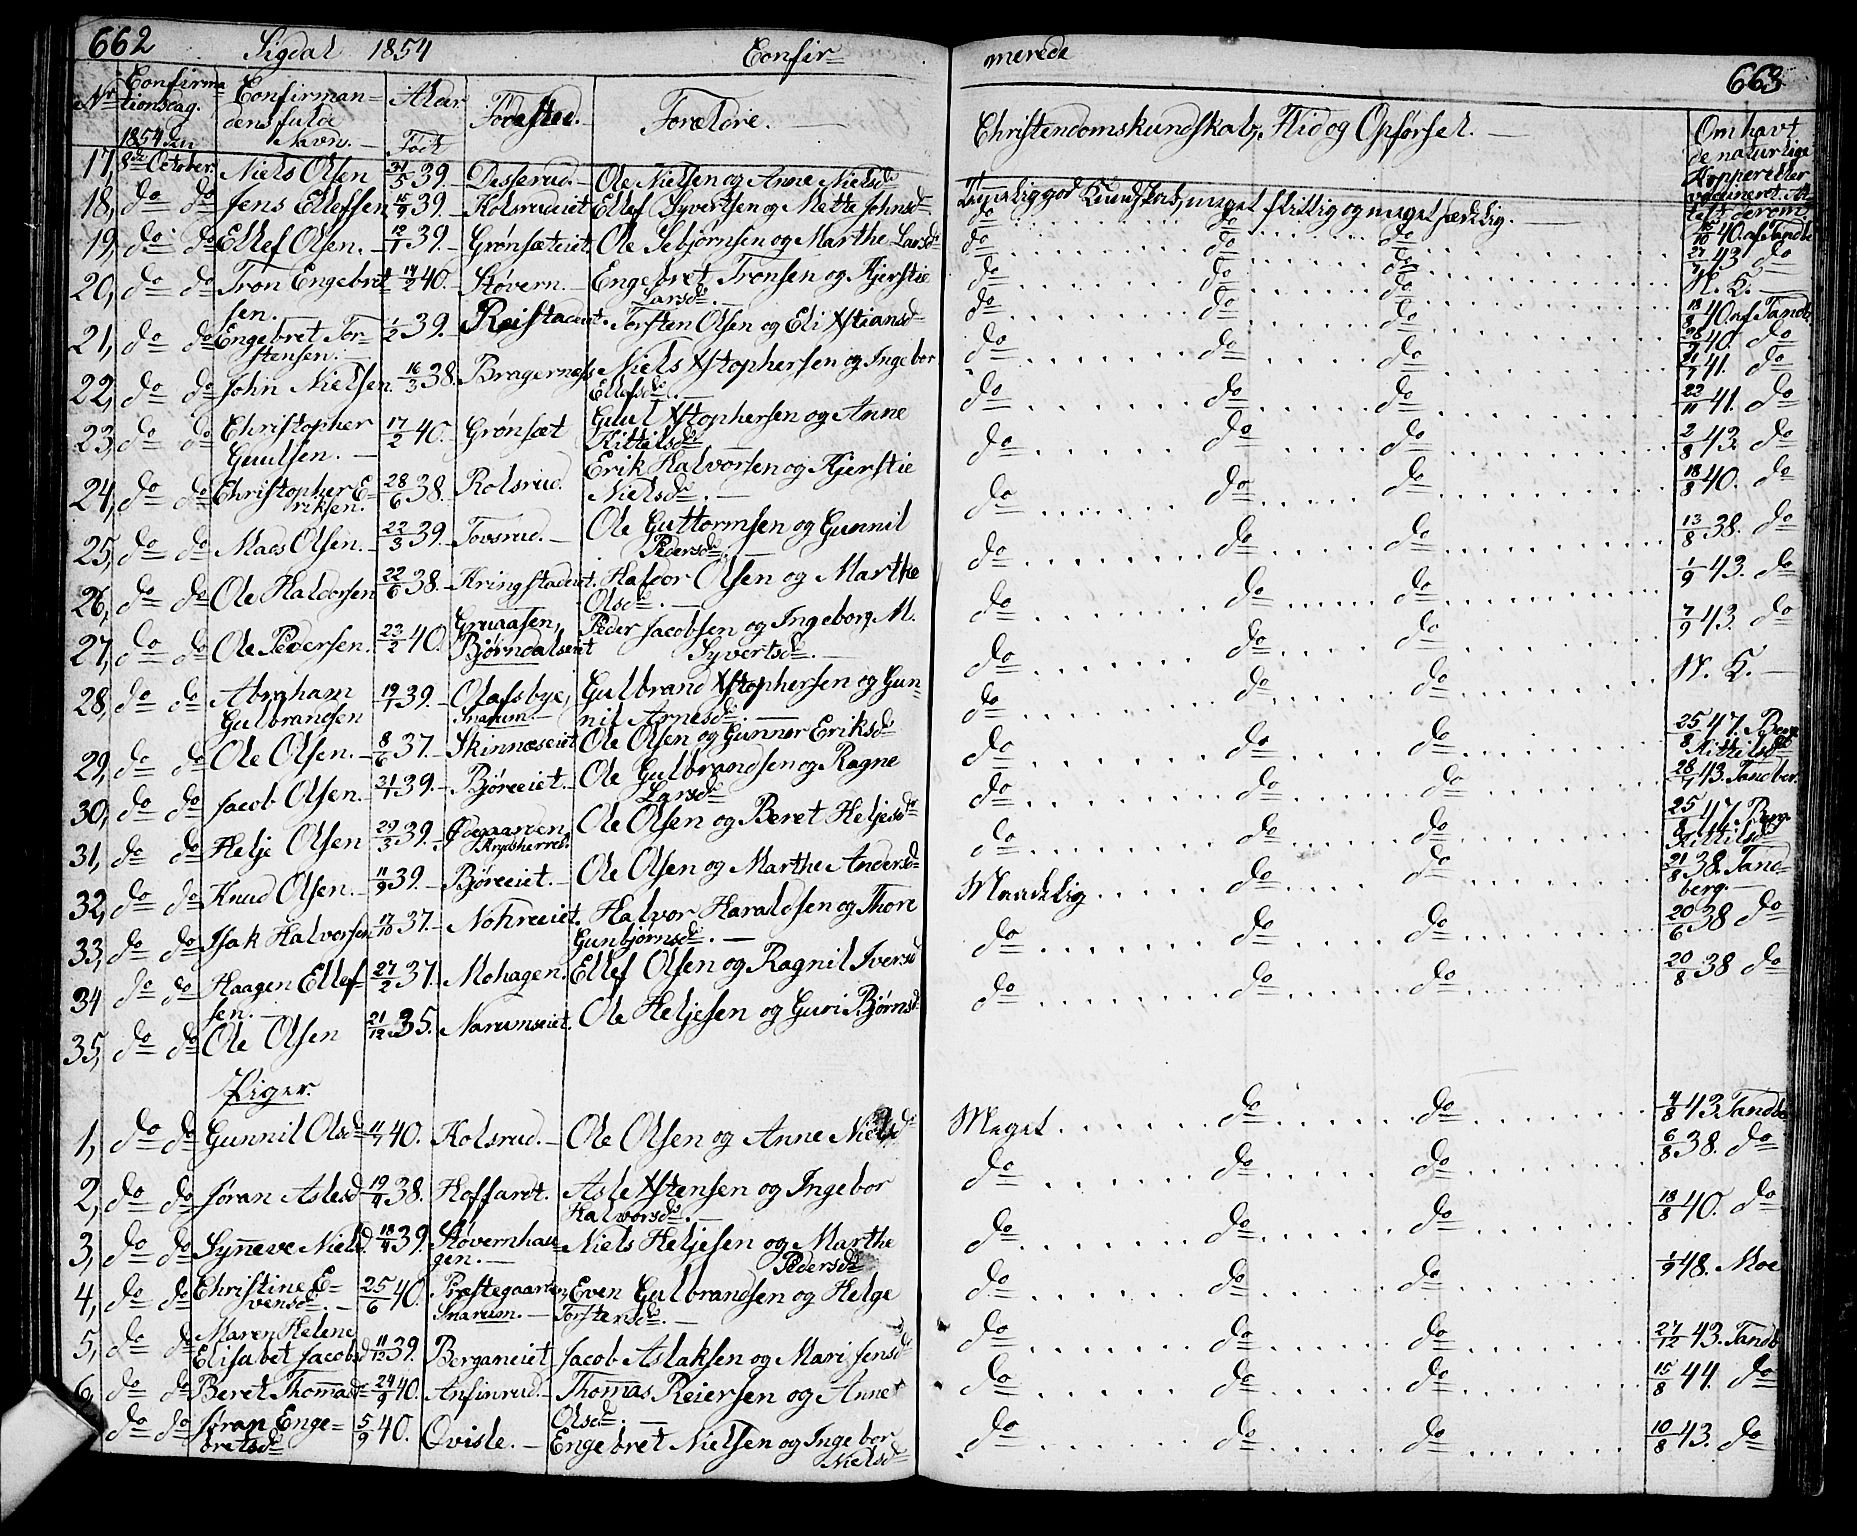 662 Sigdal 1854 Confir=
Nr Confirma tionsdag. Confirman= Alder Fødested. Forældre.
densfulde
1854 den Navn. Født
17, 8de October Niels Olsen 31/5 39. Desserud. Ole Nielsen og Anne Nielsd
18, do do Jens Ellefsen 16/9 39. Kolsrudeiet Ellef Syvertsen og Mette Johnsd
19, do do Ellef Olsen. 12/1 39. Grønsæteiet Ole Sebjørnsen og Marthe Larsd
20, do do Tron Engebret 14/2 40. Støvern. Engebret Tronsen og Kjerstie
sen. Larsd.
21, do do Engebret Tor= 1/2 39. Reistadeiet. Torsten Olsen og Eli Xstiansd
stensen.
22, do do John Nielsen. 16/3 38. Bragernæss Niels Xstophersen og Ingebor
Ellefsd.
23, do do Christopher 17/2 40. Grønsæt Guul Xstophersen og Anne
Guulsen. Kittilsd
24, do do Christopher E= 28/6 38. Rolsrud. Erik Halvorsen og Kjerstie
riksen. Nielsd.
25, do do Mads Olsen. 22/3 39. Tovsrud. Ole Guttormsen og Gunnil
Pedersd.
26, do do Ole Haldorsen 22/6 38. Kringstadeiet. Haldor Olsen og Marthe
Olsd.
27, do do Ole Pedersen. 23/2 40. Gruaasen, Peder Jacobsen og Ingebor M.
Bjørndalseiet Syvertsd.
28, do do Abraham 19/7 39. Olafsbye, Gulbrand Xstophersen og Gun=
Gulbrandsen Snarum. nil Arnesd.
29, do do Ole Olsen. 8/6 37. Skinnæseiet Ole Olsen og Gunner Eriksd
30, do do Jacob Olsen. 31/1 39. Bjøreeiet. Ole Gulbrandsen og Ragne
Larsd
31, do do Helje Olsen 29/3 39. Ødegaarden, Ole Olsen og Beret Heljesd
Krydsherred.
32, do do Knud Olsen. 11/9 39. Bjøreeiet. Ole Olsen og Marthe Andersd
33, do do Isak Halvorsen 17/10 37. Nokreeiet. Halvor Haraldsen og Thore
Gunbjørnsd.
34 do do Haagen Ellef= 27/2 37. Mohagen. Ellef Olsen og Ragnil Iversd
sen.
35, do do Ole Olsen 21/12 35. Narumseiet. Ole Heljesen og Guri Bjørnsd
Piger.
1, do do Gunnil Olsd 11/7 40. Kolsrud. Ole Olsen og Anne Nielsd
2, do do Jøran Aslesd 19/4 38. Hoffardt. Asle Xstensen og Ingebor
Halvorsd.
3, do do Synneve Nielsd. 18/4 39. Støvernhau Niels Heljesen og Marthe
gen. Pedersd
4, do do Christine E= 25/6 40. Præstegaarden, Even Gulbrandsen og Helge
vensd. Snarum. Torstensd.
5, do do Maren Helene
Elisabet Jacobsd 11/12 39. Berganeiet Jacob Aslaksen og Mari Jensd
6, do do Beret Thomasd 24/9 40. Anfinrud. Thomas Reiersen og Anne
Olsd.
do do Jøran Enge= 5/9 40. Qvisle. Engebret Nielsen og Ingebor
bretsd Nielsd
merede 663
Christendomskundskab, Flid og Opførsel. Om havt
de naturlige
Kopper eller
vaccineret. At=
test derom
Temmelig god Kundskab, meget flittig og meget sædelig. 16/10 40. af Tandb
do do do 27/7 43 do
do do do N. K.
do do do 18/8 40. af Tandb
do do do 40. do
do do do 41. do
do do do 22/11 41. do
do do do 2/8 43. do
do do do 18/8 40. do
do do do 13/8 38. do
do do do 1/9 43. do
do do do 7/9 43. do
do do do N. K.
do do do 25/8 47. Berg.
Kittilsd
do do do 28/7 43. Tandber.
do do do 25/8 47. Berg.
Kittilsd
Maadelig do do 21/8 38. Tand=
berg.
do do do 20/6 38 do
do do do 20/8 38 do
Meget do do 4/8 43. Tandb
do do do 6/8 38. do
do do do 18/8 40. do
do do do 1/9 48. Moe
do do do 27/12 43. Tandb
do do do 15/8 44. do
do do do 10/8 43. do